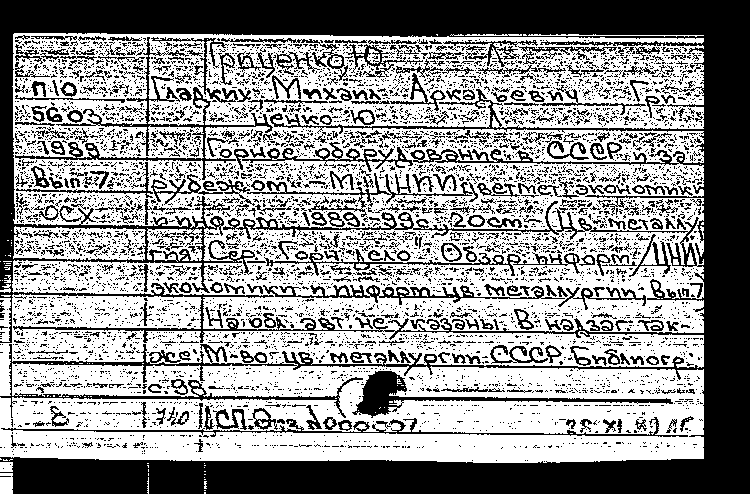 Гриценко, Ю. Л.
П10 Гладких, Михаил Аркадьевич, Гри-
5603 ценко, Ю. Л.
1988 Горное оборудование в СССР и за
Вып. 7 рубежом. - М.: ЦНИИцветмет экономики
осх и информ., 1989. - 99с., 20см. - (Цв. металлур
гия Сер. "Горн. дело" Обзор. информ. / ЦНИИ
экономики и информ. цв. металлургии; Вып.7
На обл. авт. не указаны. В надзаг. так-
же: М-во цв. металлургии СССР. Библиогр.:
с.98.
8 740 СП. Экз. N000007 28.XI.89